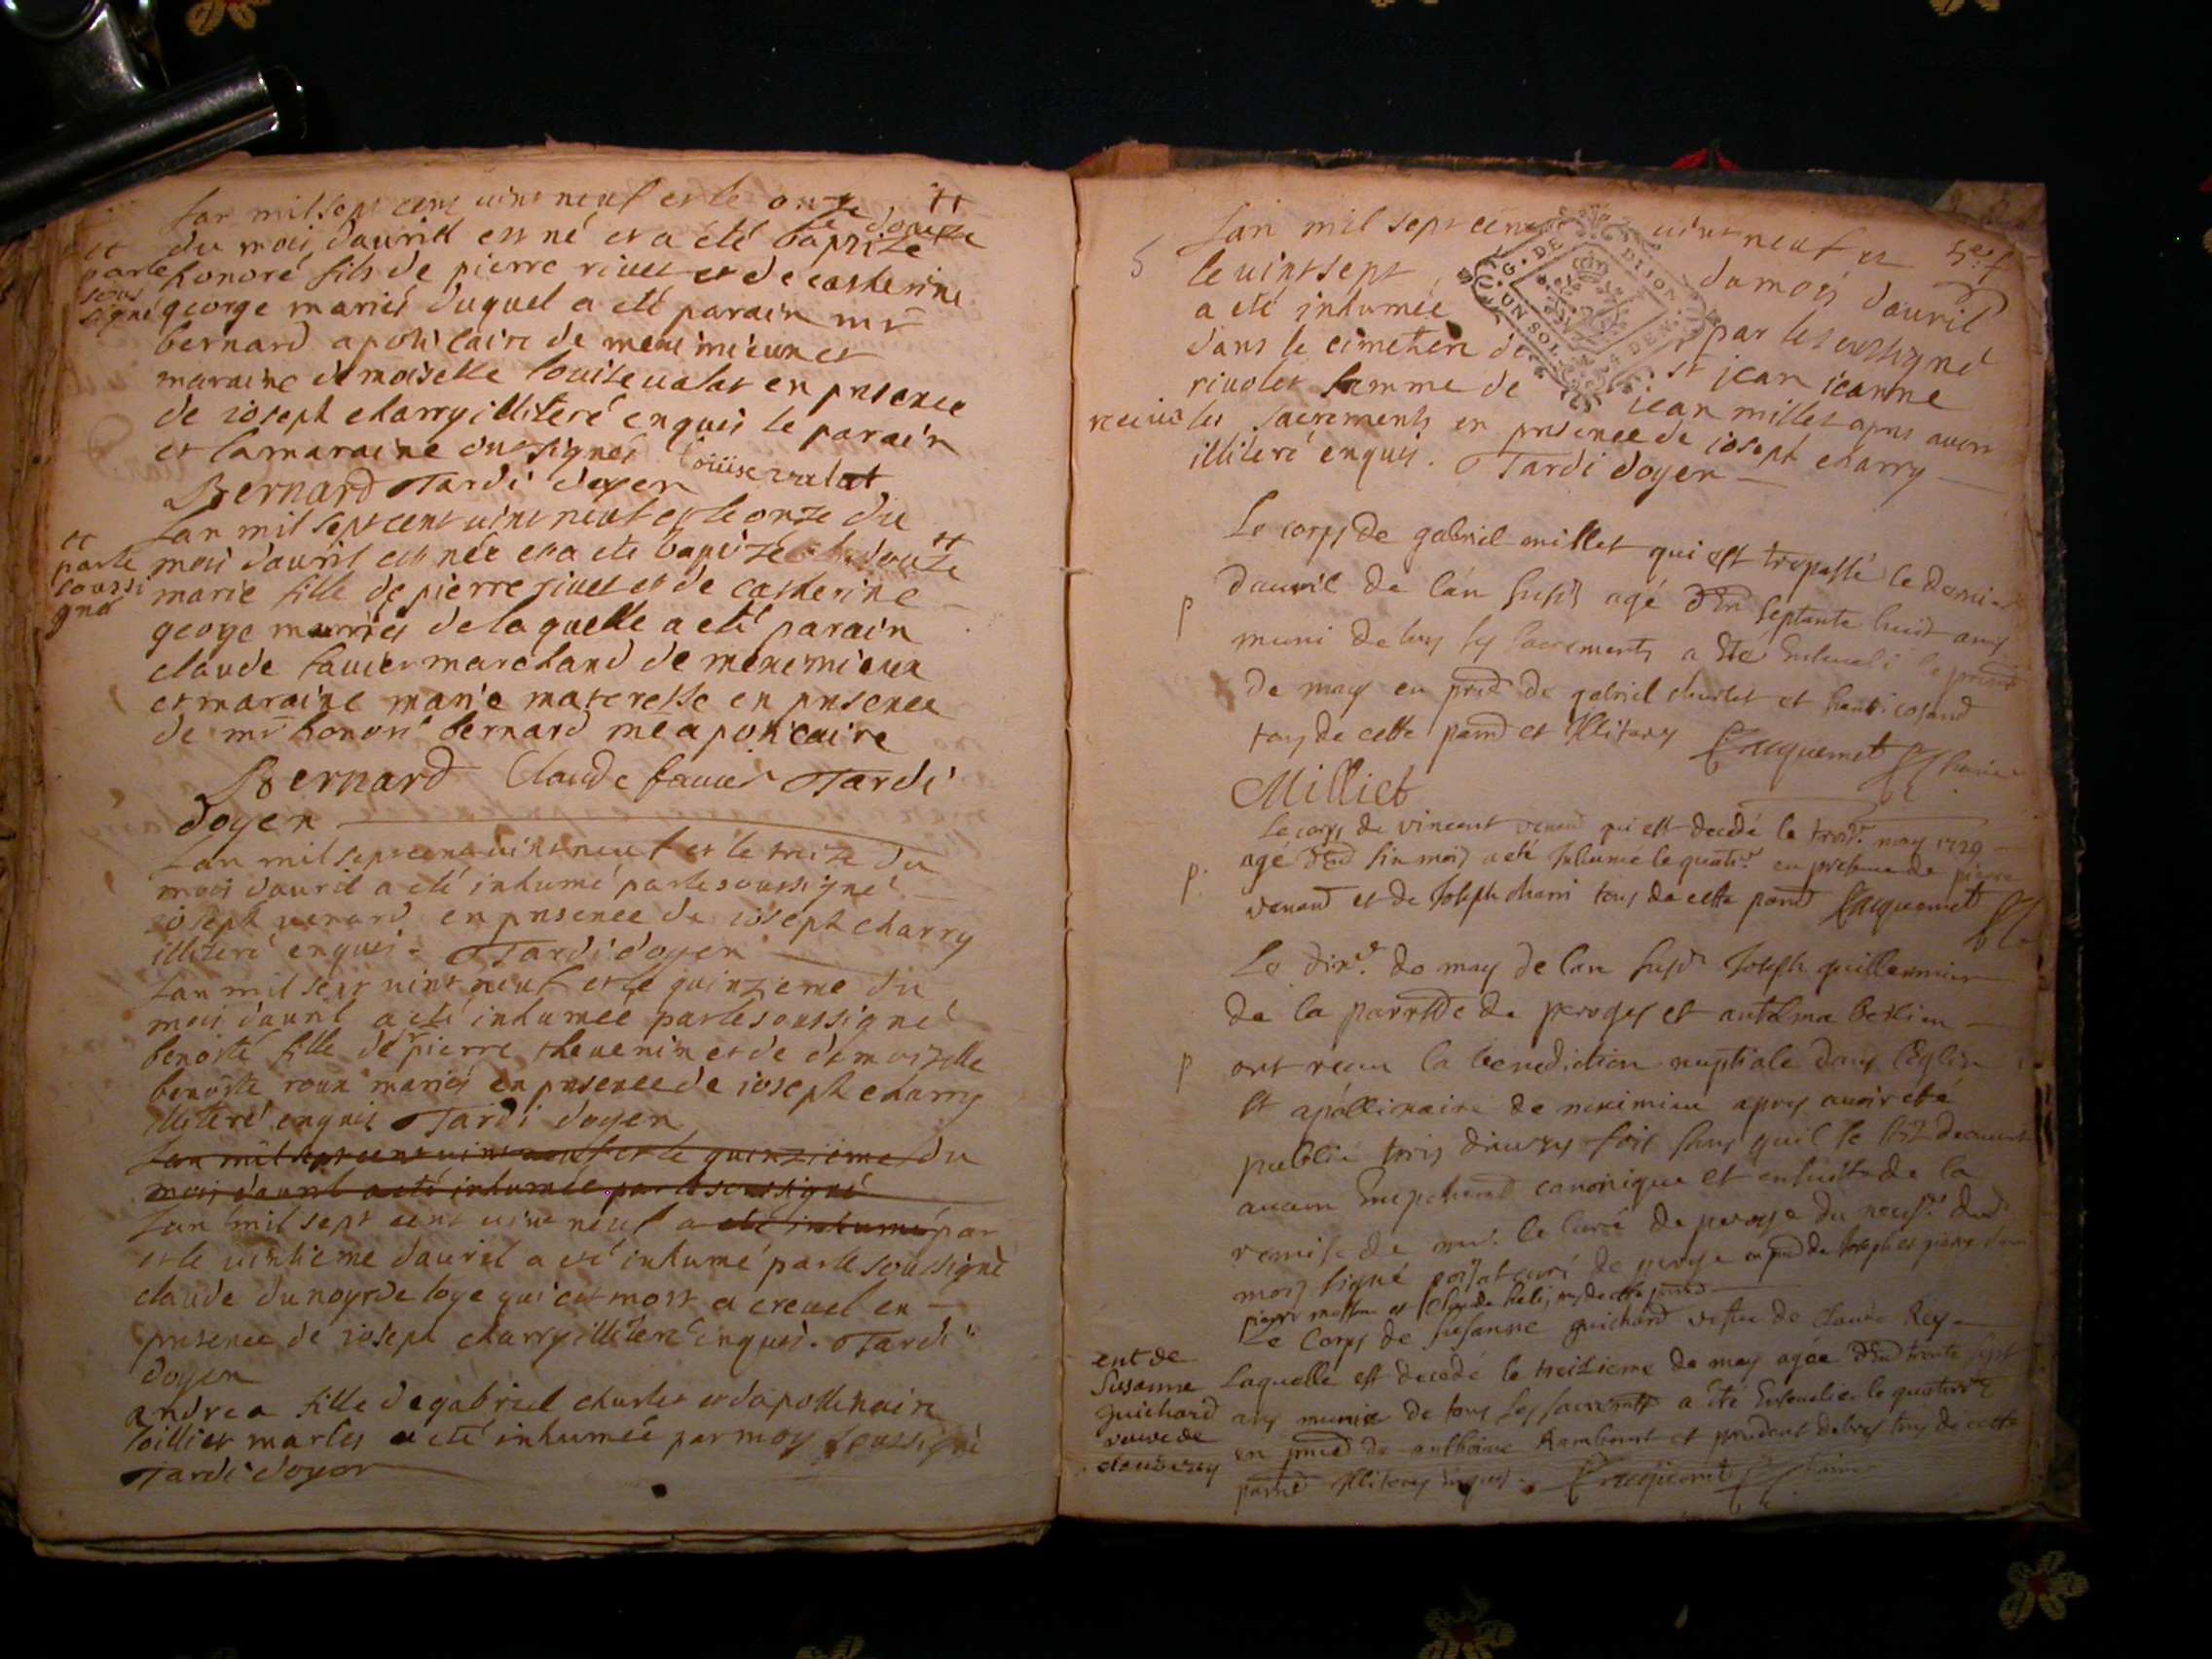 lan mil sept cent uint neuf et le onze
du mois dauril est né et a eté baptizé le douze
et parle sous signé
honoré fils de pierre riuet et de catherine
george mariés duquel a eté parain mr
bernard apoticaire de meximieux et
maraine demoiselle louise ualat en presence
de joseph charry illiteré enquis le parain
et la maraine ont signés louise valat
Bernard Tardi doyen
lan mil sept cent uint neuf et le onze du
mois dauril est née et a eté baptizé le douze
et parle soussi gné
marie fille de pierre riuet et de catherine
george mariés de laquelle a eté parain
claude fauier marchand de meximieux
et maraine marie materesse en presence
de mr honoré bernard me apoticaire
Bernard Claude fauier Tardi
doyen
lan mil sept cent uint neuf et le treize du
mois dauril a eté inhumé parle soussigné
joseph uenard en presence de joseph charry
illiteré enquis. Tardi doyen
lan mil sept uint neuf et le quinzieme du
mois dauril a eté inhumée parle soussigné
benoite fille de pierre theuenin et de demoizelle
benoite roux mariés en presence de joseph charry
illiteré enquis Tardi doyen
lan mil sept cent uint neuf et le quinzieme du
mois dauril a eté inhumée parle soussigné
lan mil sept cent uint neuf a eté inhumé par
et le uintieme dauril a eté inhumé parle soussigné
claude du noyr de loge qui est mort a creuel en
presence de joseph charry illiteré enquis. Tardi
doyen
andrea fille de gabriel charlet et dapollinaire
marles a eté inhumée par moy soussigné
Tardi doyen
lan mil sept cent uint neuf et
le uint sept du mois dauril
G. DE DIJON
UN SOL 4 DEN.
a eté inhumée par le soussigné
dans le cimetiere de st jean jeanne
riuolet femme de jean millet apres auoir
receus les sacrements en presence de joseph charry
illiteré enquis. Tardi doyen
Le corps de gabriel millet qui est trepassé le dernier
dauril de lan susd agé denv septante huit ans
muni de tous les sacrements a été Enseueli le premier
de may en pred de gabriel charlet et
tous de cette parred et Illiterez Jacquemet
Milliet
Le corps de vincent venard qui est decedé le troisr may 1729
agé denv six mois a eté Inhumé le quatre en presence de pierre
venard et de Joseph charri tous de cette parred Jacquemet
Le dixe de may de lan susd Joseph guillermier
de la parroisse de peroges et antelma
ont receu la benediction nuptiale dans léglise
St apollinaire de meximieu apres auoir été
publié trois diuerses fois sans quil se soit decouuert
aucun Empechement canonique et ensuite de la
remise de mr. le curé de peroge du neufe dud
mois signé curé de peroge en pred de Joseph et pierre
pierre
Le Corps de Susanne guichard vefue de claude Rey
ent de Susanne guichard veuve de claude rey
Laquelle est decedé le treizieme de may agée denv trente sept
ans munie de tous les sacrements a été Enseuelie le quatorze
en pred de anthoine Rambert et prudent tous de cette
parred Illiterez enquis. Jacquemet